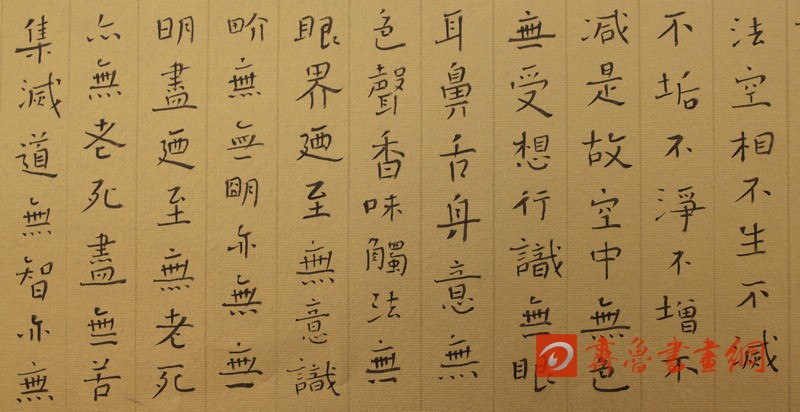 法空相不生不滅
不垢不淨不增不
减是故空中無色
無受想行識無眼
耳鼻舌身意無
色聲香味觸法無
眼界廼至無意識
畍無無朙亦無無
明盡廼至無老死
亦無老死盡無苦
集滅道無智亦無
齊魯書畫網